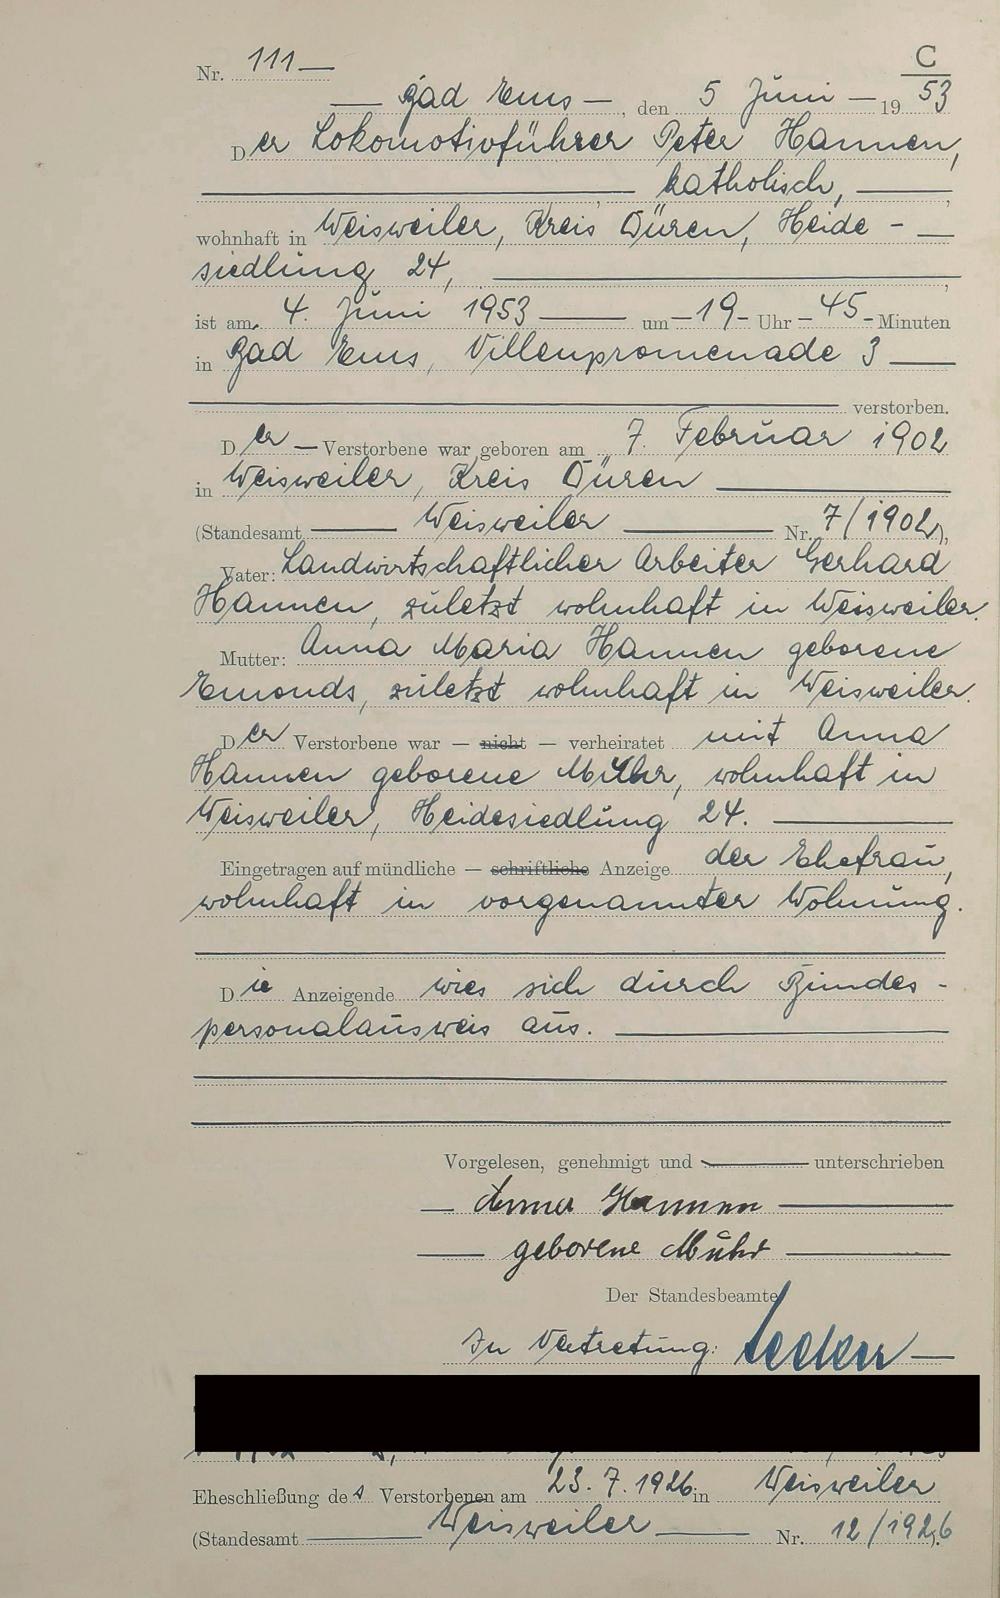 C
Nr. 111
Bad Ems, den 5 Juni 1953
Der Lokomotivführer Peter Hannen,
katholisch,
wohnhaft in Weisweiler, Kreis Düren, Heide-
siedlung 24,
ist am 4. Juni 1953 um 19 Uhr 45 Minuten
in Bad Ems, Villenpromenade 3
verstorben.
Der Verstorbene war geboren am 7. Februar 1902
in Weisweiler, Kreis Düren
(Standesamt Weisweiler Nr. 7/1902),
Vater: Landwirtschaftlicher Arbeiter Gerhard
Hannen, zuletzt wohnhaft in Weisweiler.
Mutter: Anna Maria Hannen geborene
Emonds, zuletzt wohnhaft in Weisweiler.
Der Verstorbene war — nicht — verheiratet mit Anna
Hannen geborene Muhr, wohnhaft in
Weisweiler, Heidesiedlung 24.
Eingetragen auf mündliche — schriftliche Anzeige der Ehefrau,
wohnhaft in vorgenannter Wohnung.
Die Anzeigende wies sich durch Bundes-
personalausweis aus.
Vorgelesen, genehmigt und unterschrieben
Anna Hannen
geborene Muhr
Der Standesbeamte
In Vertretung:
Eheschließung des Verstorbenen am 23.7.1926 in Weisweiler
(Standesamt Weisweiler Nr. 12/1926).